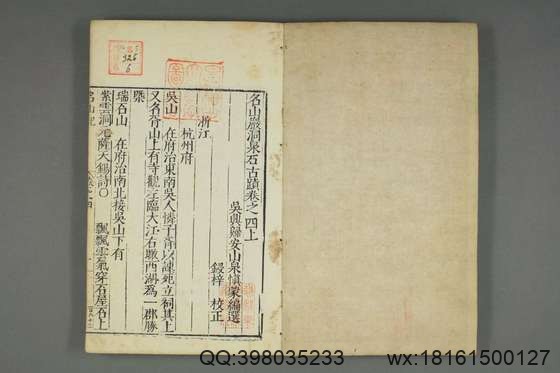 名山巖洞泉石古蹟卷之四上
吳興歸安山泉慎蒙編選
鋟梓 校正
浙江
杭州府
吳山 在府治東南吳人憐子胥以諫死立祠其上
又名胥山上有寺觀左臨大江右瞰西湖為一郡勝
槩
瑞石山 在府治南北接吳山下有
紫雲洞元薩天錫詩〇 飄飄雲氣穿石屋石上
名山記
326
6
QQ:398035233
wx:18161500127